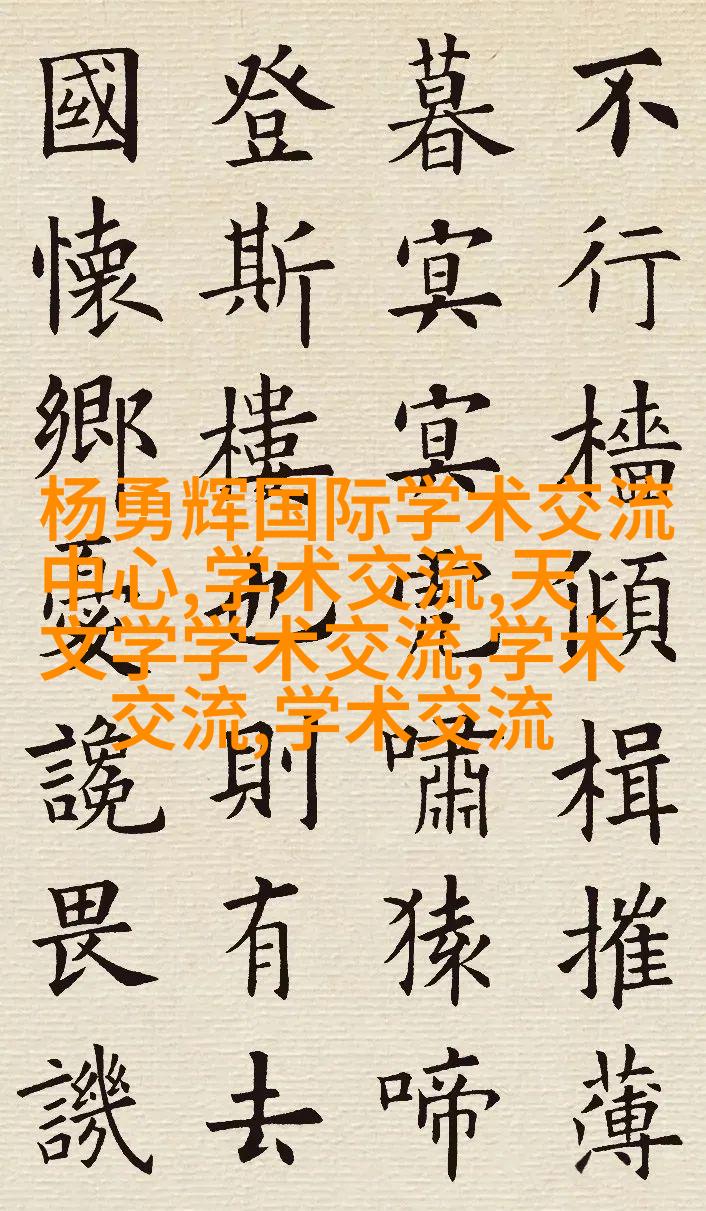 不行檣傾楫摧薄
暮冥冥虎嘯猿啼
登斯樓也則有去
國懷鄉憂讒畏譏
杨勇辉国际学术交流
中心,学术交流,天
文学学术交流,学术
交流,学术交流